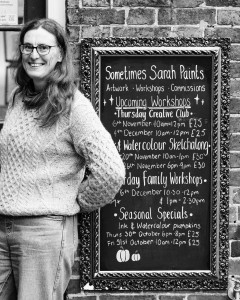 Sometimes Sarah Paints
Artwork · Workshops · Commissions
Upcoming Workshops
Thursday Creative Club
6th November 10am-12pm £25
4th December 10am-12pm £25
Watercolour Sketchalong
20th November 10am-1pm £30
- 1pm £30
day Family Workshops
6th December 10:30-12pm
& 1pm - 2:30pm
Seasonal Specials
Ink & Watercolour pumpkins
Thurs 30th October 6pm-8pm £25
Fri 31st October 10am-12pm £25